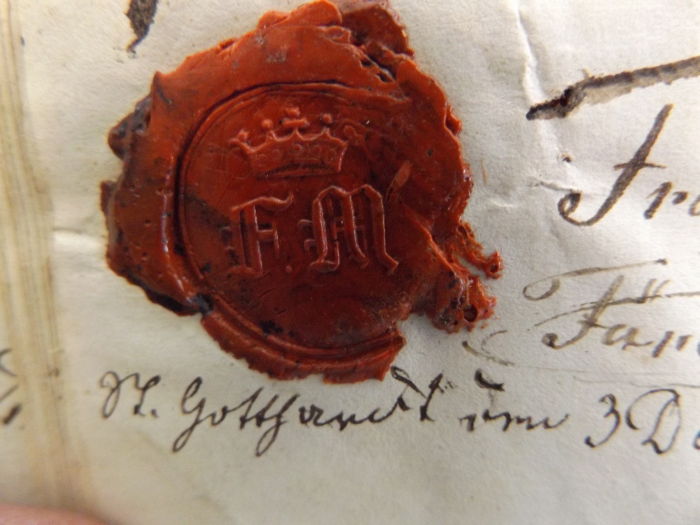 F. M
Fra
Für
St. Gotthardt den 3 De